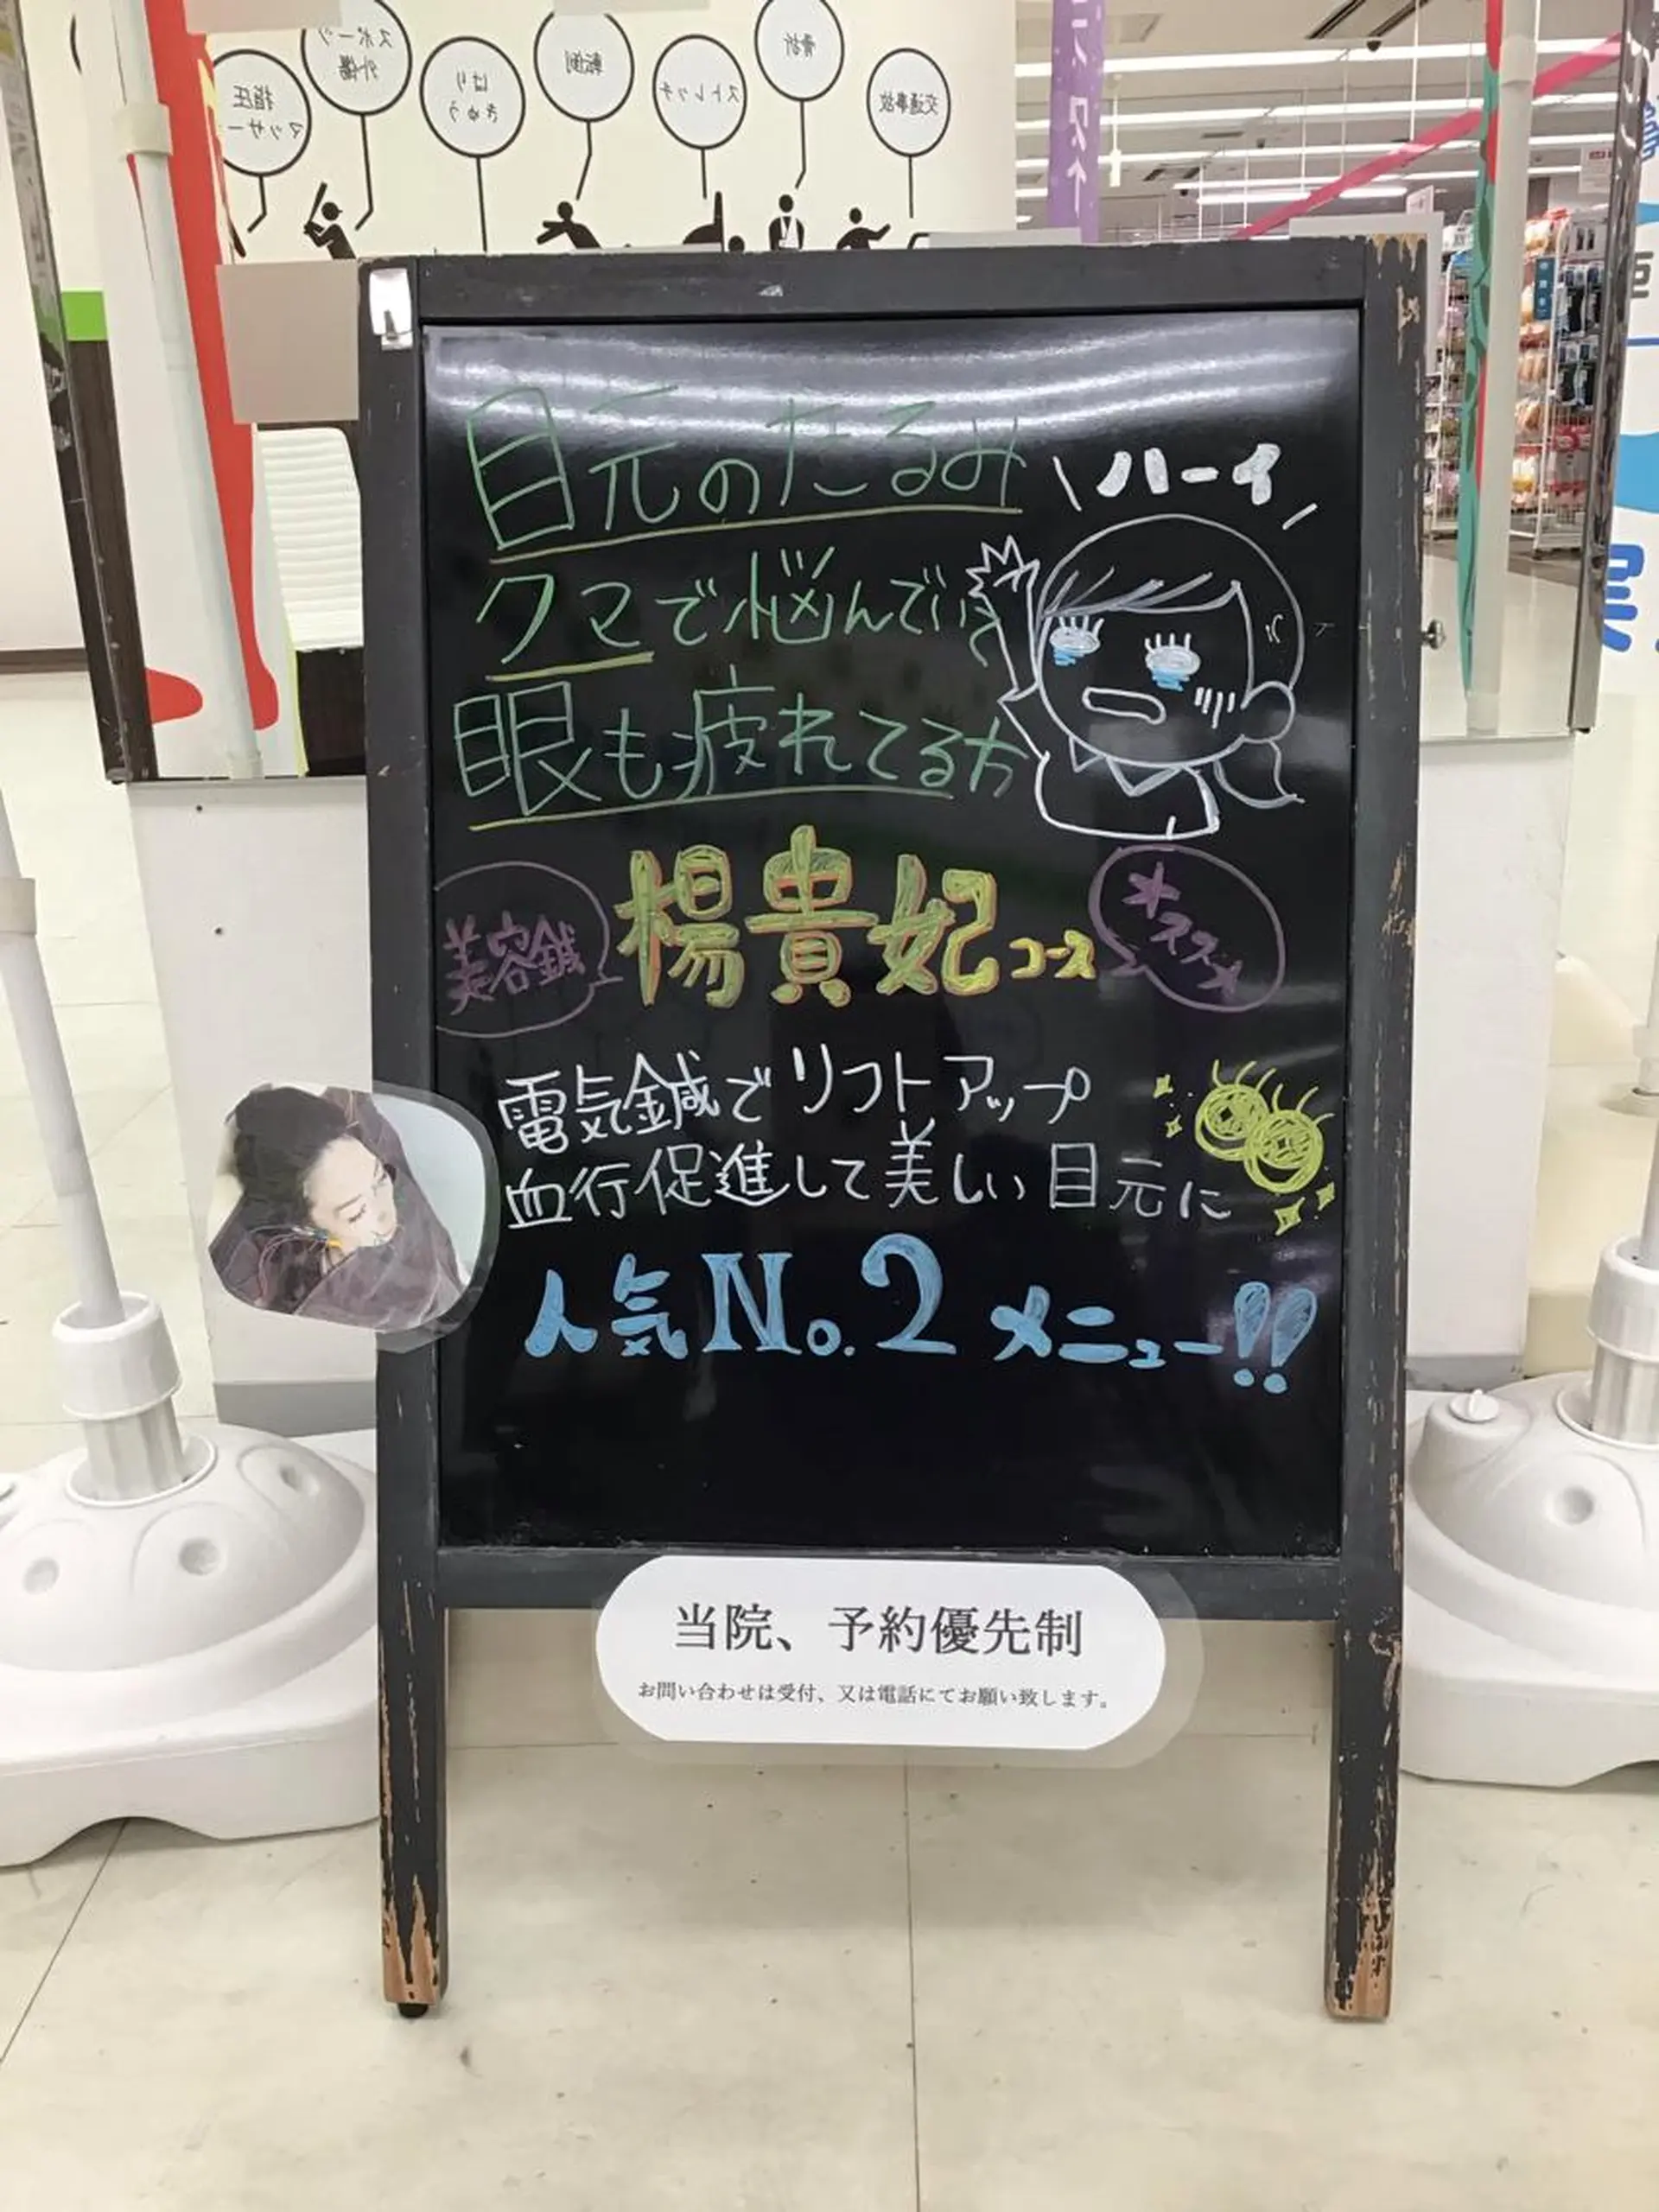 指圧
マッサー
スポーツ
外傷
はり
きゅう
転倒
ストレッチ
骨折
交通事故
目元のたるみ
ハーイ
クマで悩んでいる
眼も疲れてる方
美容鍼
楊貴妃コース
オススメ
電気鍼でリフトアップ
血行促進して美しい目元に
人気No.2メニュー!!
当院、予約優先制
お問い合わせは受付、又は電話にてお願い致します。